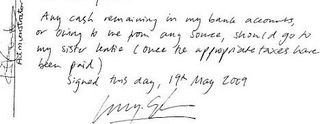 Any cash remaining in my bank accounts,
or owing to me from any source, should go to
my sister (once the appropriate taxes have
been paid)
Signed this day, 19th May 2009
Administrator